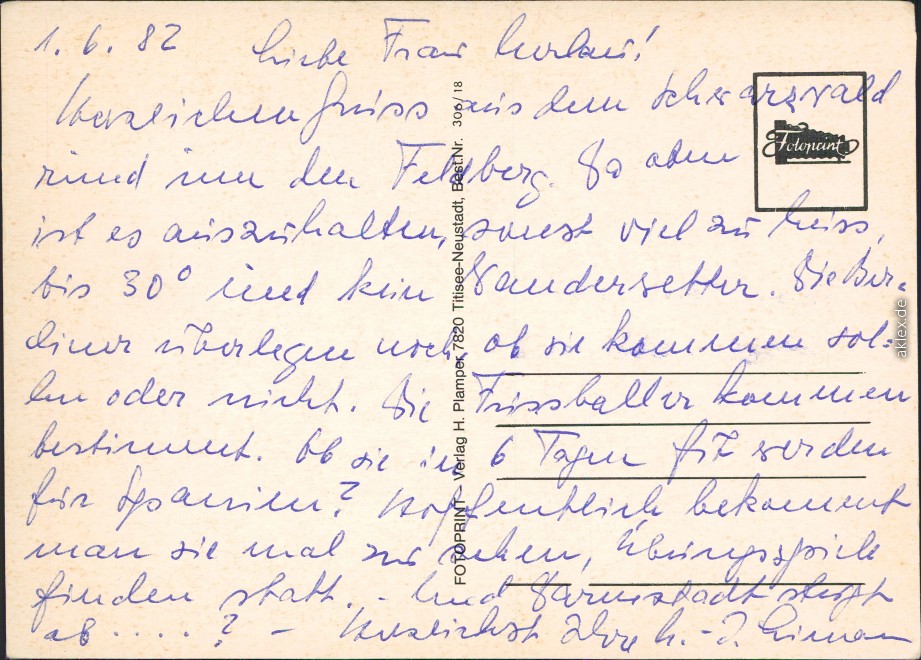 1.6.82 Liebe Frau
Herzlichen Gruss aus dem Schwarzwald
rund um den Feldberg. Da oben
ist es auszuhalten, sonst viel zu heiss,
bis 30° und kein Wanderwetter. Die Ber-
liner überlegen noch, ob sie kommen sol-
len oder nicht. Die Fussballer kommen
bestimmt. Ob sie in 6 Tagen fit werden
für Spanien? Hoffentlich bekommt
man sie mal zu sehen, Übungsspiele
finden statt. - Und Darmstadt steigt
ab .... ? - Herzlichst Ihre
Fotoprint
FOTOPRINT - Verlag H. Plamper, 7820 Titisee-Neustadt, Best.Nr. 306/18
aklex.de